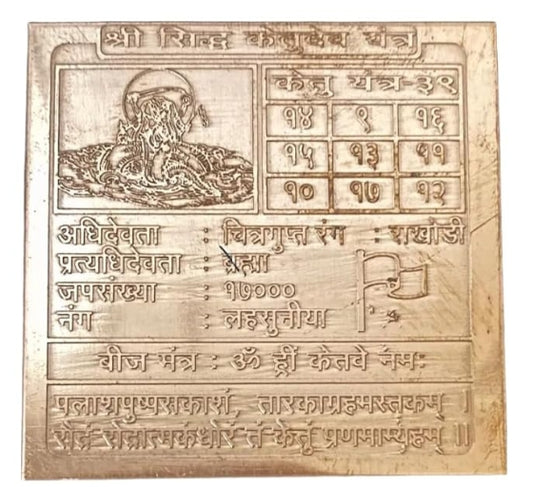 श्री सिद्ध केतुदेव यंत्र
केतु यंत्र-३९
१४ ९ १६
१५ १३ ११
१० १७ १२
अधिदेवता : चित्रगुप्त रंग : राखांडी
प्रत्यधिदेवता : ब्रह्मा
जपसंख्या : १७०००
नंग : लहसुनीया
बीज मंत्र : ॐ ह्रीं केतवे नमः
पलाशपुष्पसकाशं, तारकाग्रहमस्तकम् ।
रौद्रं रौद्रात्मकंघोरं तं केतुं प्रणमाम्यहम् ॥